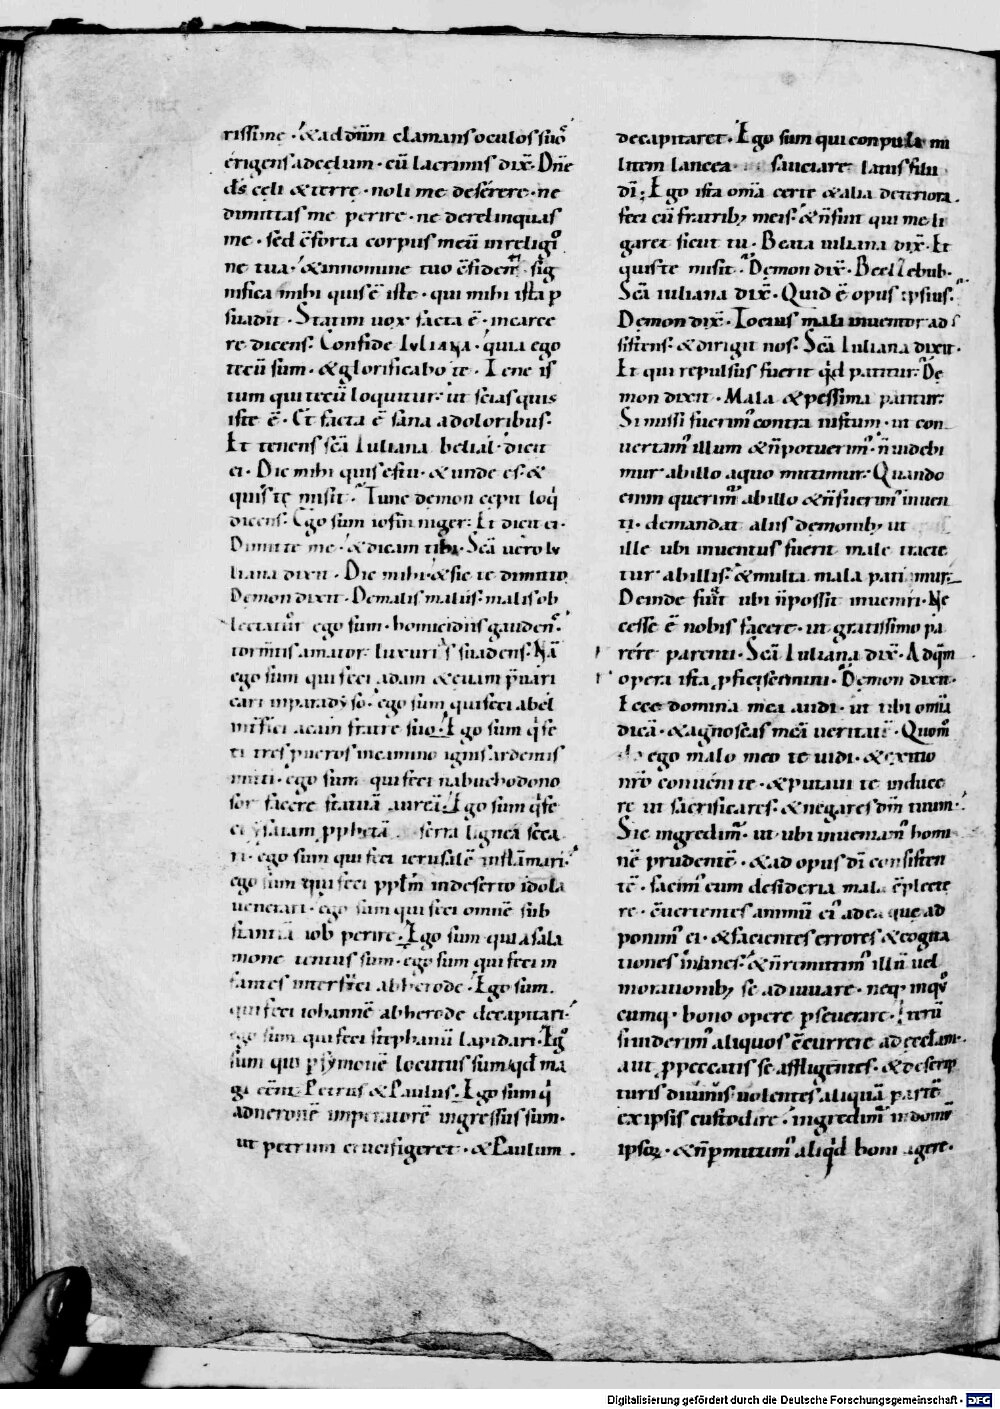 rissime · & ad dñm clamans oculos suo᷒
erigens ad celum · cū lacrimis dix̄ · Dñe
ds̄ celi & terre · noli me deserere · ne
dimittas me perire · ne derelinquas
me · sed c̄forta corpus meū in religio
ne tua · & in nomine tuo c̄fident · sig
nifica mihi quis ē iste · qui mihi ista p
suadit · Statim uox facta ē · in carce
re dicens · Confide IVLIANA · quia ego
tecū sum · & glorificabo te · Tene is
tum qui tecū loquitur · ut scias quis
iste ē · Et facta ē sana a doloribus ·
Et tenens scā Iuliana belial · dicit
ei · Dic mihi quis es tu · & unde es · &
quis te misit · Tunc demon cepit loq
dicens · Ego sum iofin niger · Et dicit ei ·
Dimitte me · & dicam tibi · Scā uero Iu
liana dixit · Dic mihi · & sic te dimitto
Demon dixit · De malis malus · malis ob
lectatur ego sum · homicidiis gaudens
tormtis amator · luxuris suadens · Nā
ego sum qui feci adam & euam puari
cari in paradyso · ego sum qui feci abel
intfici a cain fratre suo · Ego sum q fe
ci tres pueros in camino ignis ardentis
mitti · ego sum qui feci nabuchodono
sor facere statuā aureā · Ego sum q fe
ci ysaiam pphetā serra lignea seca
ri · ego sum qui feci ierusalē inflāmari ·
ego sum qui feci pplm in deserto idola
uenerari · ego sum qui feci omnē sub
stantiā iob perire · Ego sum qui a sala
mone tentus sum · ego sum qui feci in
fantes interfici ab herode · Ego sum
qui feci iohannē ab herode decapitari ·
ego sum qui feci stephanū lapidari · Ego
sum qui p symonē locutus sum qd ma
gi eent Petrus & Paulus · Ego sum q
ad neronē imperatorē ingressus sum ·
ut petrum crucifigeret · & Paulum ·
decapitaret · Ego sum qui conpula mi
litem lancea sauciare latus filii
dī · Ego ista oma certe & alia deteriora ·
feci cū fratrib; meis · & ñ sunt qui me li
garet sicut tu · Beata iuliana dix̄ · Et
quis te misit · Demon dix̄ · Beelzebub ·
Scā iuliana dix̄ · Quid ē opus ipsius ·
Demon dix̄ · Tocius mali inuentor ad
sistens · & dirigit nos · Scā Iuliana dixit ·
Et qui repulsus fuerit qd patitur · De
mon dixit · Mala & pessima patitur ·
Si missi fuerim contra iustum · ut con
uertam illum & ñ potuerim · ñ uidebi
mur ab illo a quo mittimur · Quando
enim querim ab illo & ñ fuerim inuen
ti · demandat aliis demonib; ut
ille ubi inuentus fuerit male tracte
tur ab illis · & multa mala pati mur ·
Deinde furit ubi ñ possit inueniri · Ne
cesse ē nobis facere · ut gratissimo pa
rere parenti · Scā Iuliana dix̄ · Ad qm
opera ista pficiscimini · Demon dixit ·
Ecce domina mea audi · ut tibi omīa
dicā · & agnoscas meā ueritatē · Quom
do ego malo meo te uidi · & exitio
nr̄o conueni te · & putaui te induce
re ut sacrificares · & negares dm̄ tuum ·
Sic ingredim · ut ubi inueniam homi
nē prudentē · & ad opus dī consisten
tē · facim eum desideria mala c̄plecte
re · c̄uertentes animū ei ad ea que ad
ponim ei · & facientes errores & cogita
tiones inanes · & ñ remittim illū uel
morationib; se adiuuare · neq; in q
cumq; bono opere pseuerare · Iterū
si uiderim aliquos c̄currere ad eccl̄am ·
aut p peccatis se affligentes · & de scrip
turis diuinis uolentes aliquā partē
ex ipsis custodire · ingredim in domū
ipsoꝝ · & ñ pmittim aliqd boni agere ·
Digitalisierung gefördert durch die Deutsche Forschungsgemeinschaft - DFG